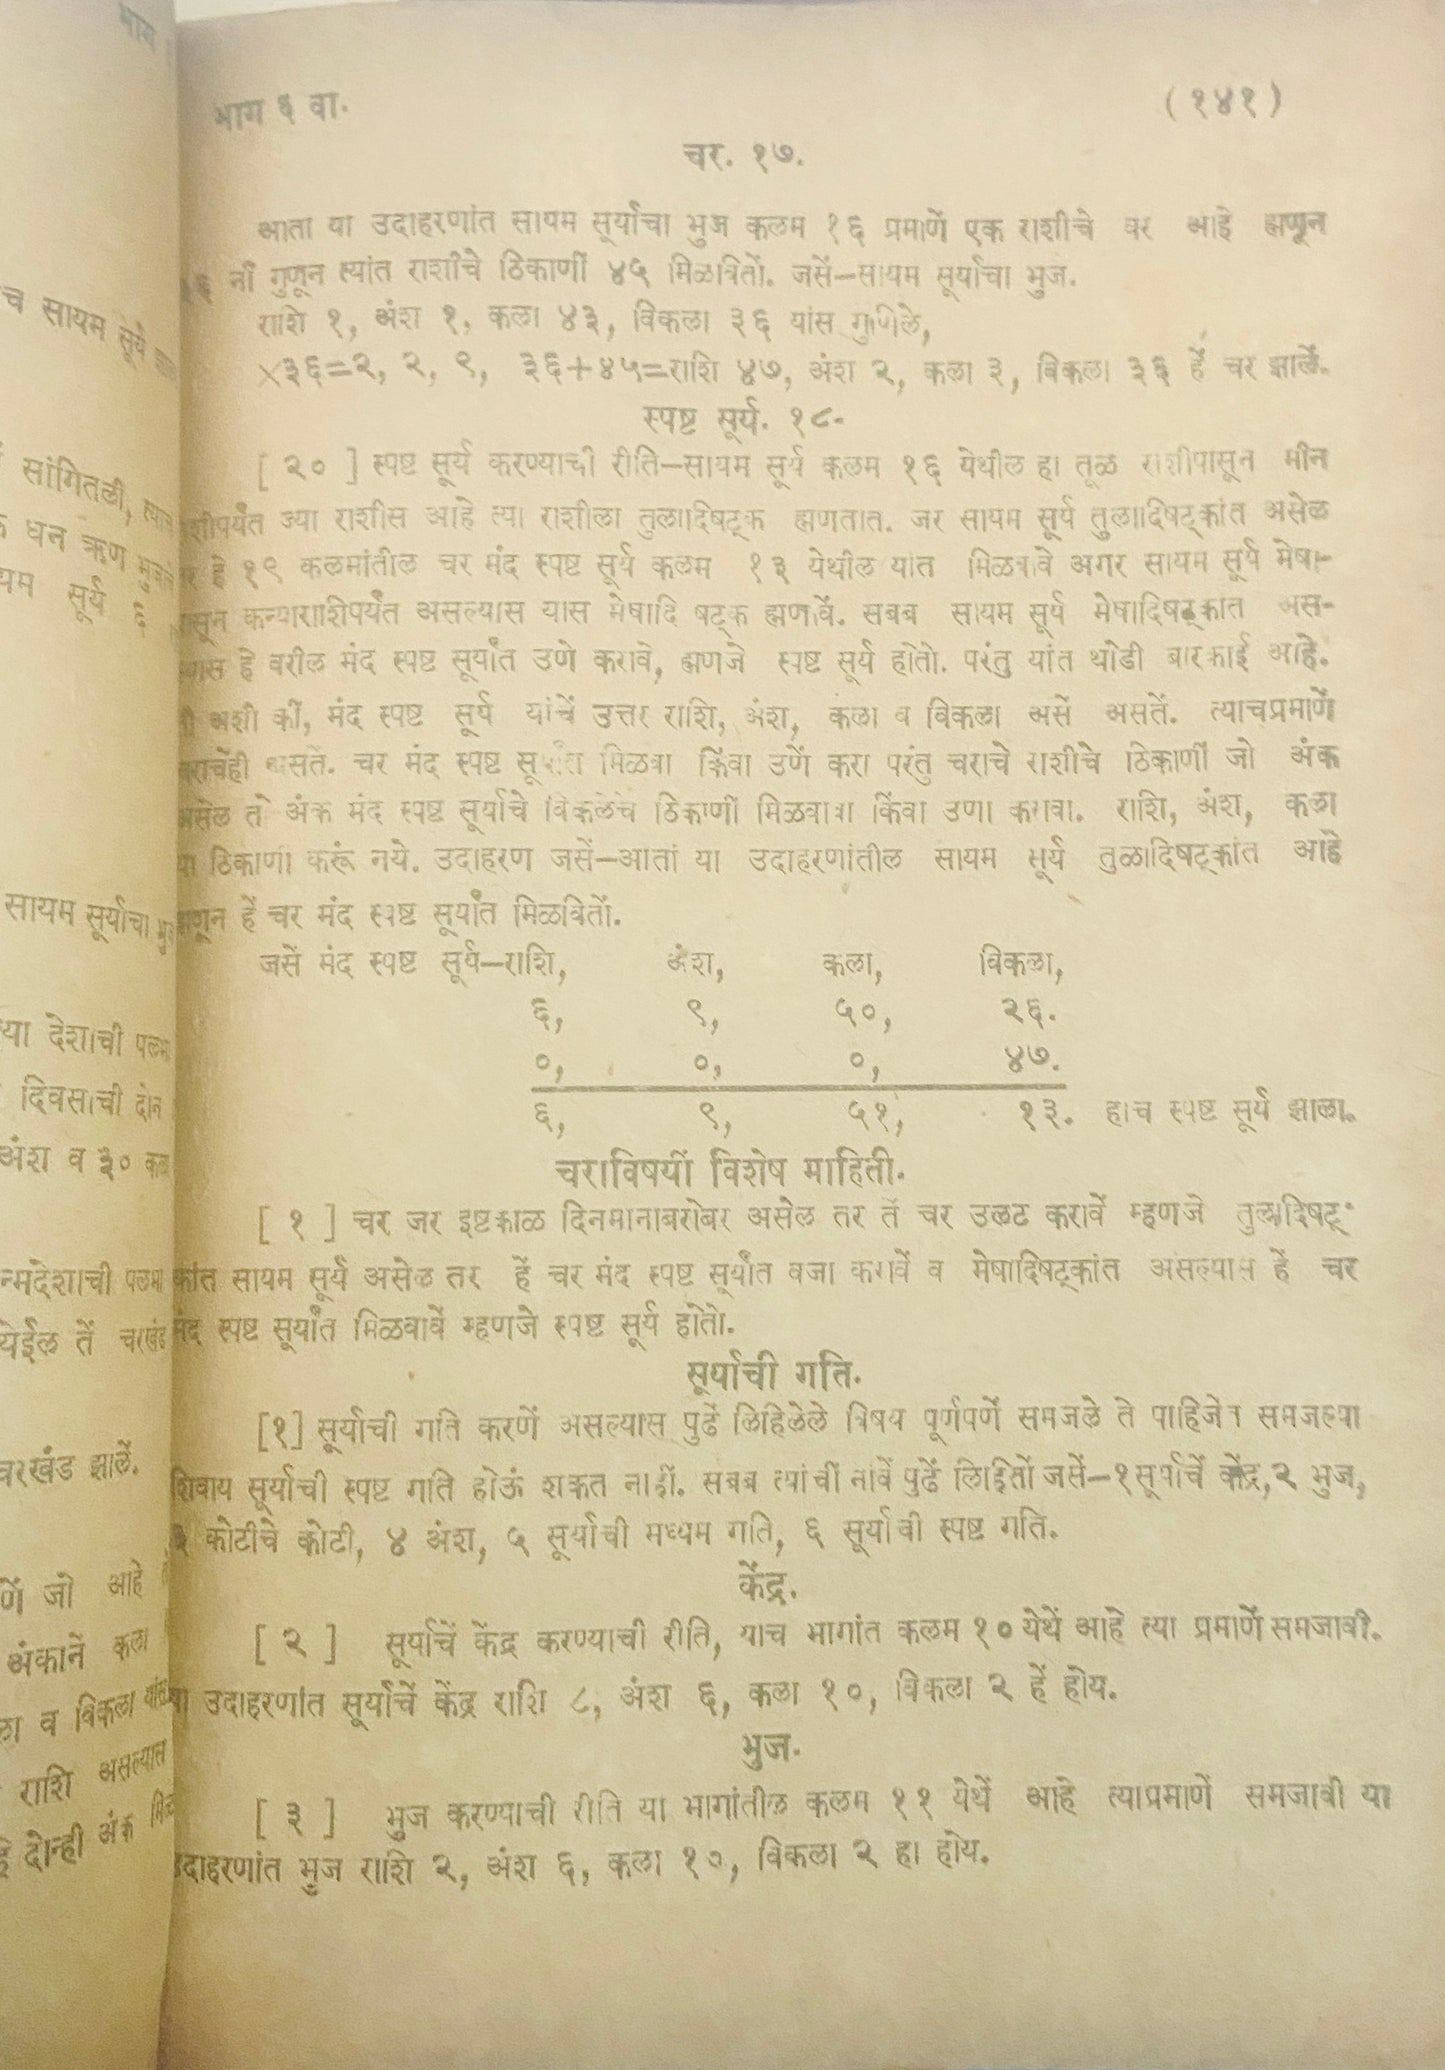 भाग ६ वा.
(१४१)
चर. १७.
आता या उदाहरणांत सायम सूर्याचा भुज कलम १६ प्रमाणें एक राशीचे वर आहे ह्मणून
नीं गुणून त्यांत राशीचे ठिकाणीं ४५ मिळवितों. जसें—सायम सूर्याचा भुज.
राशि १, अंश १, कला ४३, विकला ३६ यांस गुणिले,
×३६=२, २, ९, ३६+४५=राशि ४७, अंश २, कला ३, विकला ३६ हें चर झालें.
स्पष्ट सूर्य. १८.
[ २० ] स्पष्ट सूर्य करण्याची रीति—सायम सूर्य कलम १६ येथील हा तूळ राशीपासून मीन
ज्या राशीस आहे त्या राशीला तुलादिषट्क ह्मणतात. जर सायम सूर्य तुलादिषट्कांत असेल
हे १९ कलमांतील चर मंद स्पष्ट सूर्य कलम १३ येथील यांत मिळवावे अगर सायम सूर्य मेषा-
कन्याराशीपर्यंत असल्यास यास मेषादि षट्क ह्मणावें. सबब सायम सूर्य मेषादिषट्कांत अस-
हे वरील मंद स्पष्ट सूर्यांत उणे करावे, ह्मणजे स्पष्ट सूर्य होतो. परंतु यांत थोडी बारकाई आहे.
अशी कीं, मंद स्पष्ट सूर्य यांचें उत्तर राशि, अंश, कला व विकला असें असतें. त्याचप्रमाणें
चराचेंही असतें. चर मंद स्पष्ट मिळवा किंवा उणें करा परंतु चराचे राशीचे ठिकाणीं जो अंक
असेल तो अंक मंद स्पष्ट सूर्याचे विकलेचे ठिकाणीं मिळवावा किंवा उणा करावा. राशि, अंश, कला
या ठिकाणी करूं नये. उदाहरण जसें—आतां या उदाहरणांतील सायम सूर्य तुळादिषट्कांत आहे
ह्मणून हें चर मंद स्पष्ट सूर्यांत मिळवितों.
जसें मंद स्पष्ट सूर्य—राशि, अंश, कला, विकला,
६, ९, ५०, २६.
०, ०, ०, ४७.
६, ९, ५१, १३. हाच स्पष्ट सूर्य झाला.
चराविषयीं विशेष माहिती.
[ १ ] चर जर इष्टकाळ दिनमानाबरोबर असेल तर तें चर उलट करावें म्हणजे तुलादिषट्-
कांत सायम सूर्य असेल तर हें चर मंद स्पष्ट सूर्यांत वजा करावें व मेषादिषट्कांत असल्यास हें चर
मंद स्पष्ट सूर्यांत मिळवावें म्हणजे स्पष्ट सूर्य होतो.
सूर्याची गति.
[१] सूर्याची गति करणें असल्यास पुढें लिहिलेले विषय पूर्णपणें समजले ते पाहिजेत समजल्या
शिवाय सूर्याची स्पष्ट गति होऊं शकत नाहीं. सबब त्यांचीं नांवें पुढें लिहितों जसें—१सूर्याचें केंद्र,२ भुज,
३ कोटीचे कोटी, ४ अंश, ५ सूर्याची मध्यम गति, ६ सूर्याची स्पष्ट गति.
केंद्र.
[ २ ] सूर्याचें केंद्र करण्याची रीति, याच भागांत कलम १० येथें आहे त्या प्रमाणें समजावी.
या उदाहरणांत सूर्याचें केंद्र राशि ८, अंश ६, कला १०, विकला २ हें होय.
भुज.
[ ३ ] भुज करण्याची रीति या भागांतील कलम ११ येथें आहे त्याप्रमाणें समजावी या
उदाहरणांत भुज राशि २, अंश ६, कला १०, विकला २ हा होय.